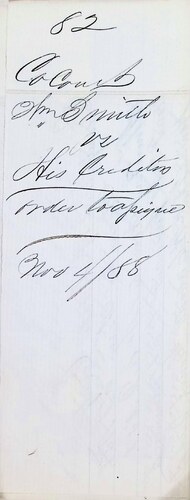 82
Co Court
Wm Smith
vs
His Creditors
order to assigne
Nov 4/88